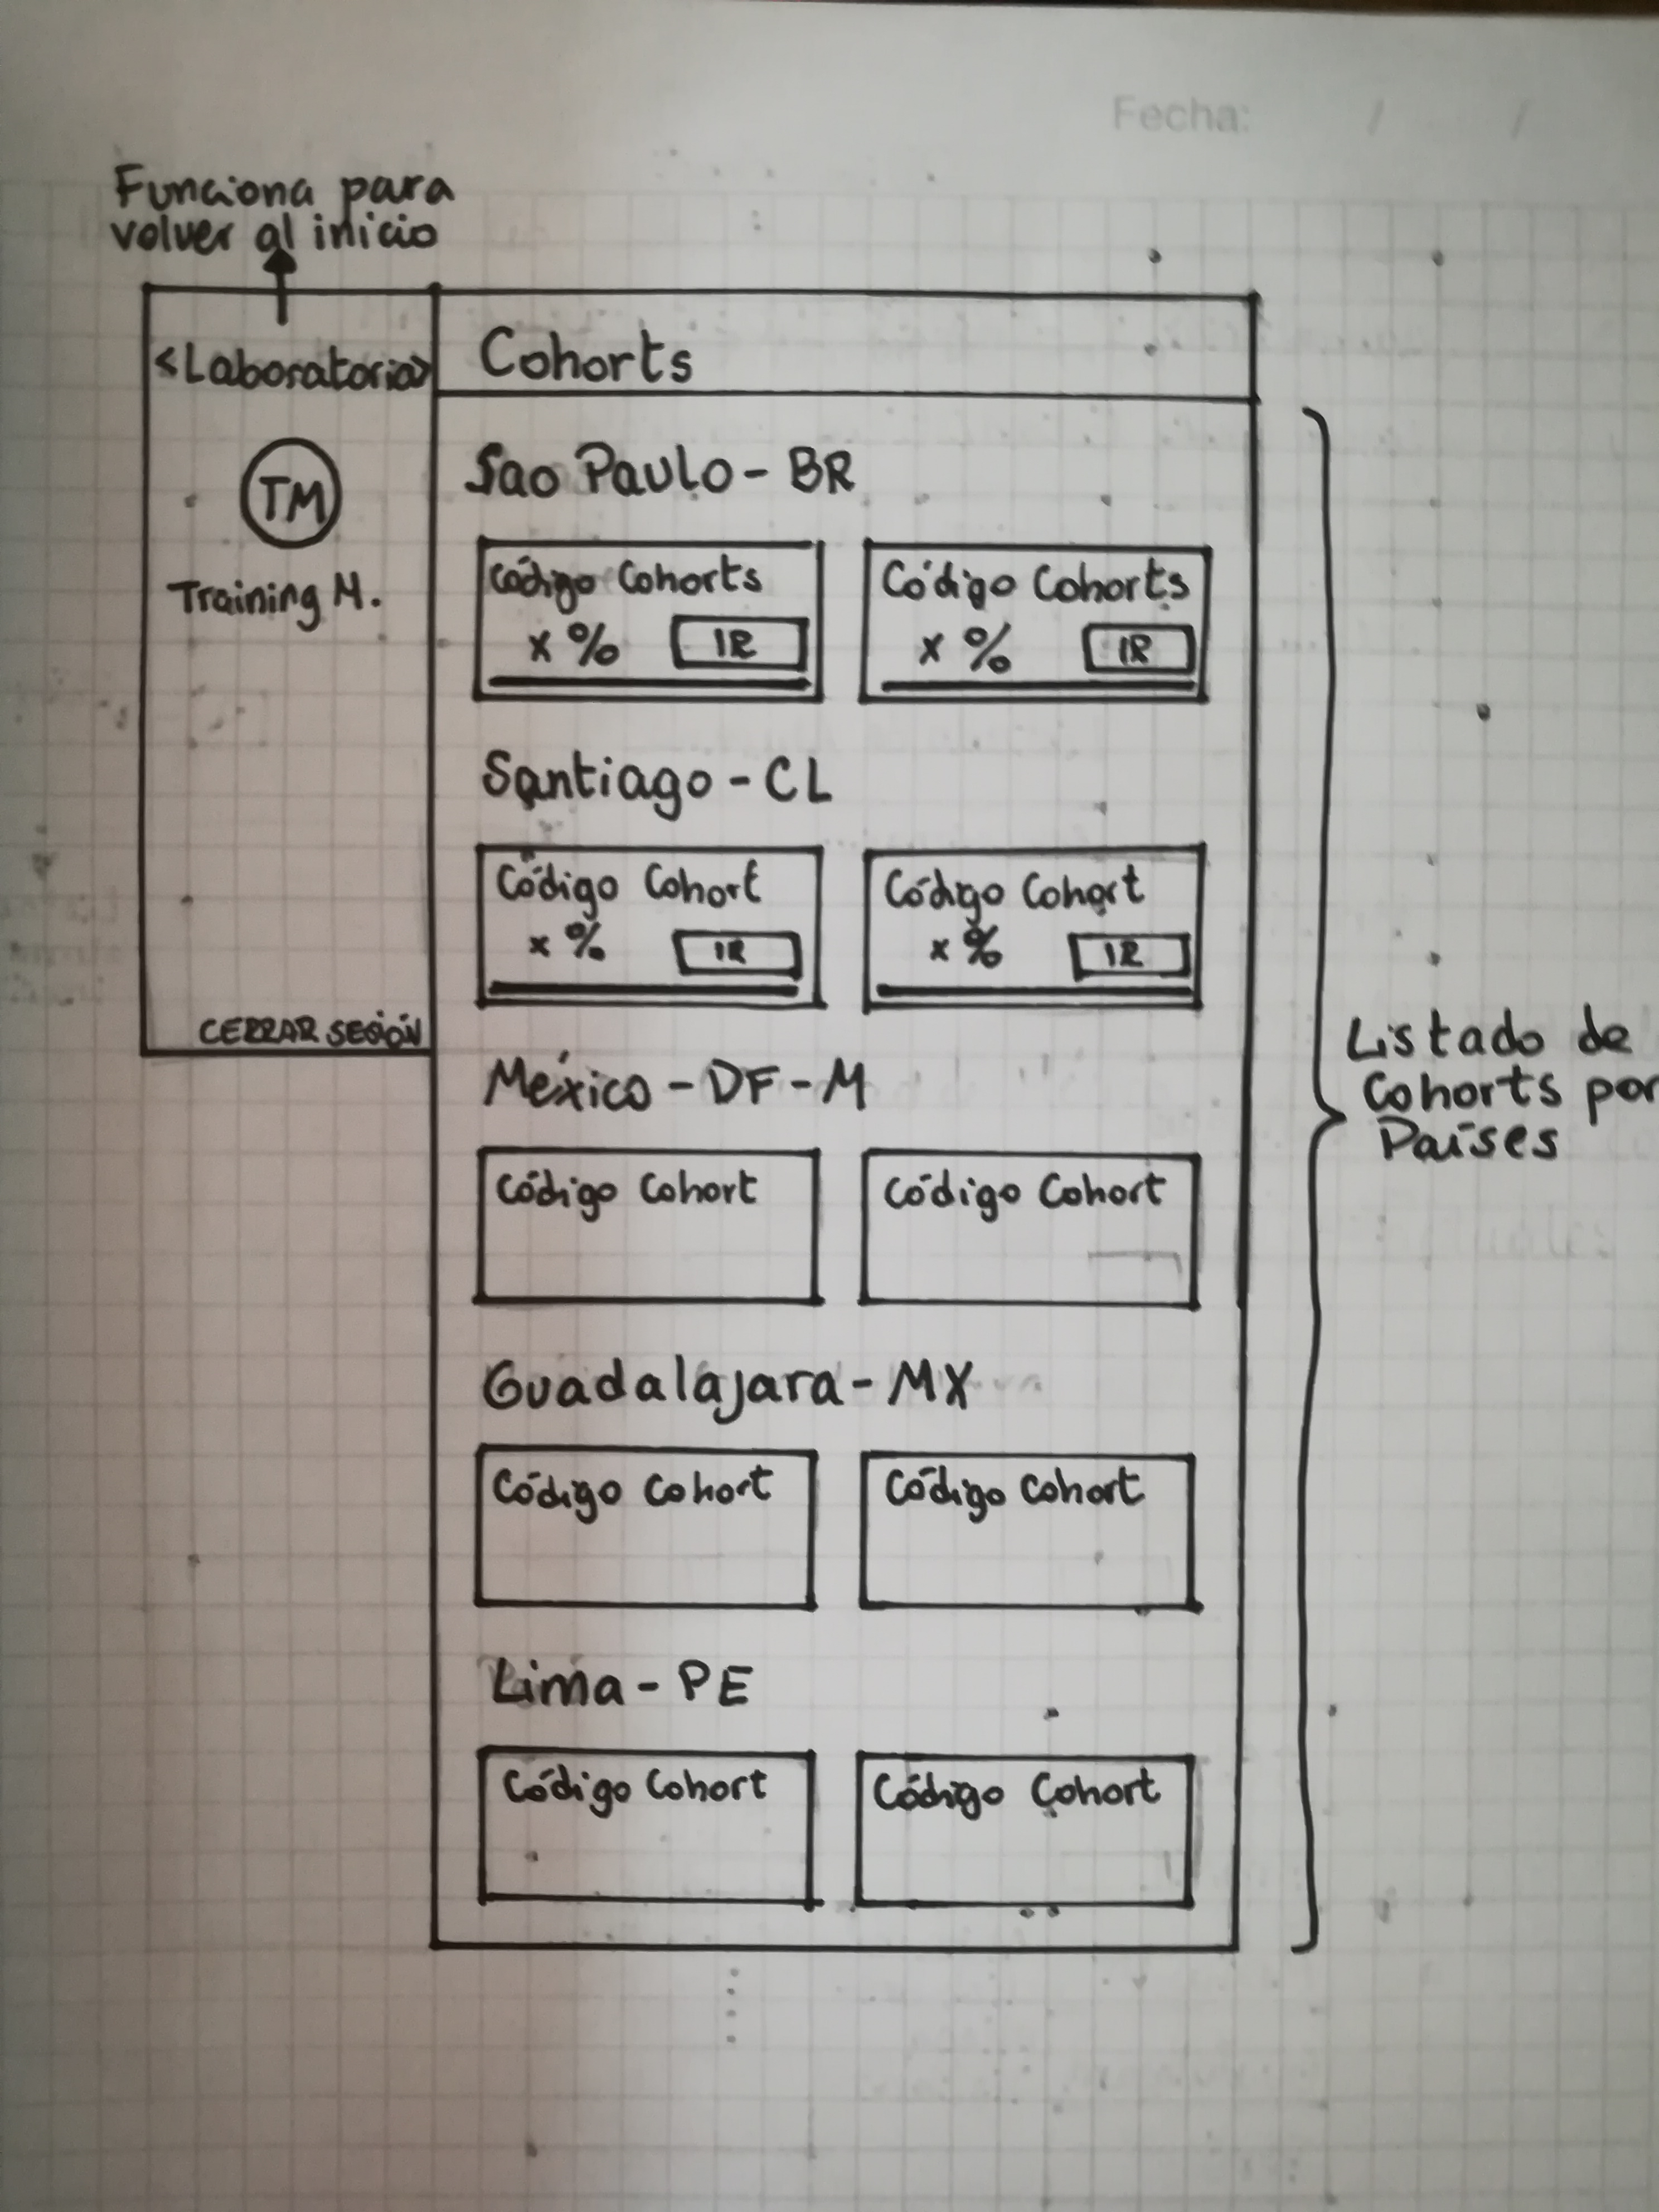 Fecha: / /
Funciona para
volver al inicio
<Laboratoria>
TM
Training M.
CERRAR SESIÓN
Cohorts
Sao Paulo - BR
Código Cohorts
x % IR
Código Cohorts
x % IR
Santiago - CL
Código Cohort
x % IR
Código Cohort
x % IR
México - DF - M
Código Cohort
Código Cohort
Guadalajara - MX
Código Cohort
Código Cohort
Lima - PE
Código Cohort
Código Cohort
Listado de
Cohorts por
Países